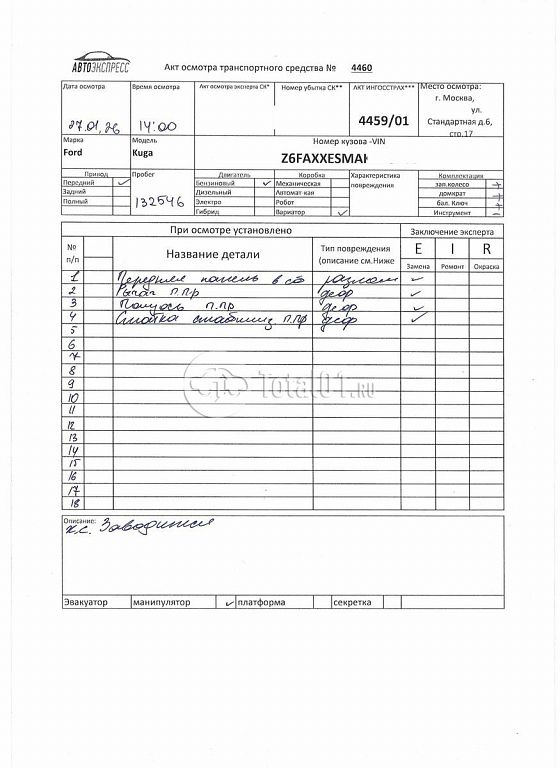 АВТОЭКСПРЕСС
Акт осмотра транспортного средства № 4460
Дата осмотра Время осмотра Акт осмотра эксперта СК* Номер убытка СК** АКТ ИНГОССТРАХ*** Место осмотра:
г. Москва,
ул.
27.01.26 14:00 4459/01 Стандартная д.6,
стр.17
Марка Модель Номер кузова -VIN
Ford Kuga Z6FAXXESMAH
Привод Пробег Двигатель Коробка Характеристика Комплектация
Передний ✓ Бензиновый ✓ Механическая повреждения зап.колесо +
Задний Дизельный Автомат кая домкрат +
Полный 132546 Электро Робот бал. Ключ +
Гибрид Вариатор ✓ Инструмент –
При осмотре установлено Заключение эксперта
№ Название детали Тип повреждения E I R
п/п (описание см.Ниже Замена Ремонт Окраска
1 Передняя панель в сб разлом ✓
2 Рычаг п.пр деф ✓
3 Полуось п.пр деф ✓
4 Стойка стабилиз. п.пр деф ✓
5
6
7
8
9
10
11
12
13
14
15
16
17
18
Total01.RU
Описание:
х.с. Заводится
Эвакуатор манипулятор ✓ платформа секретка